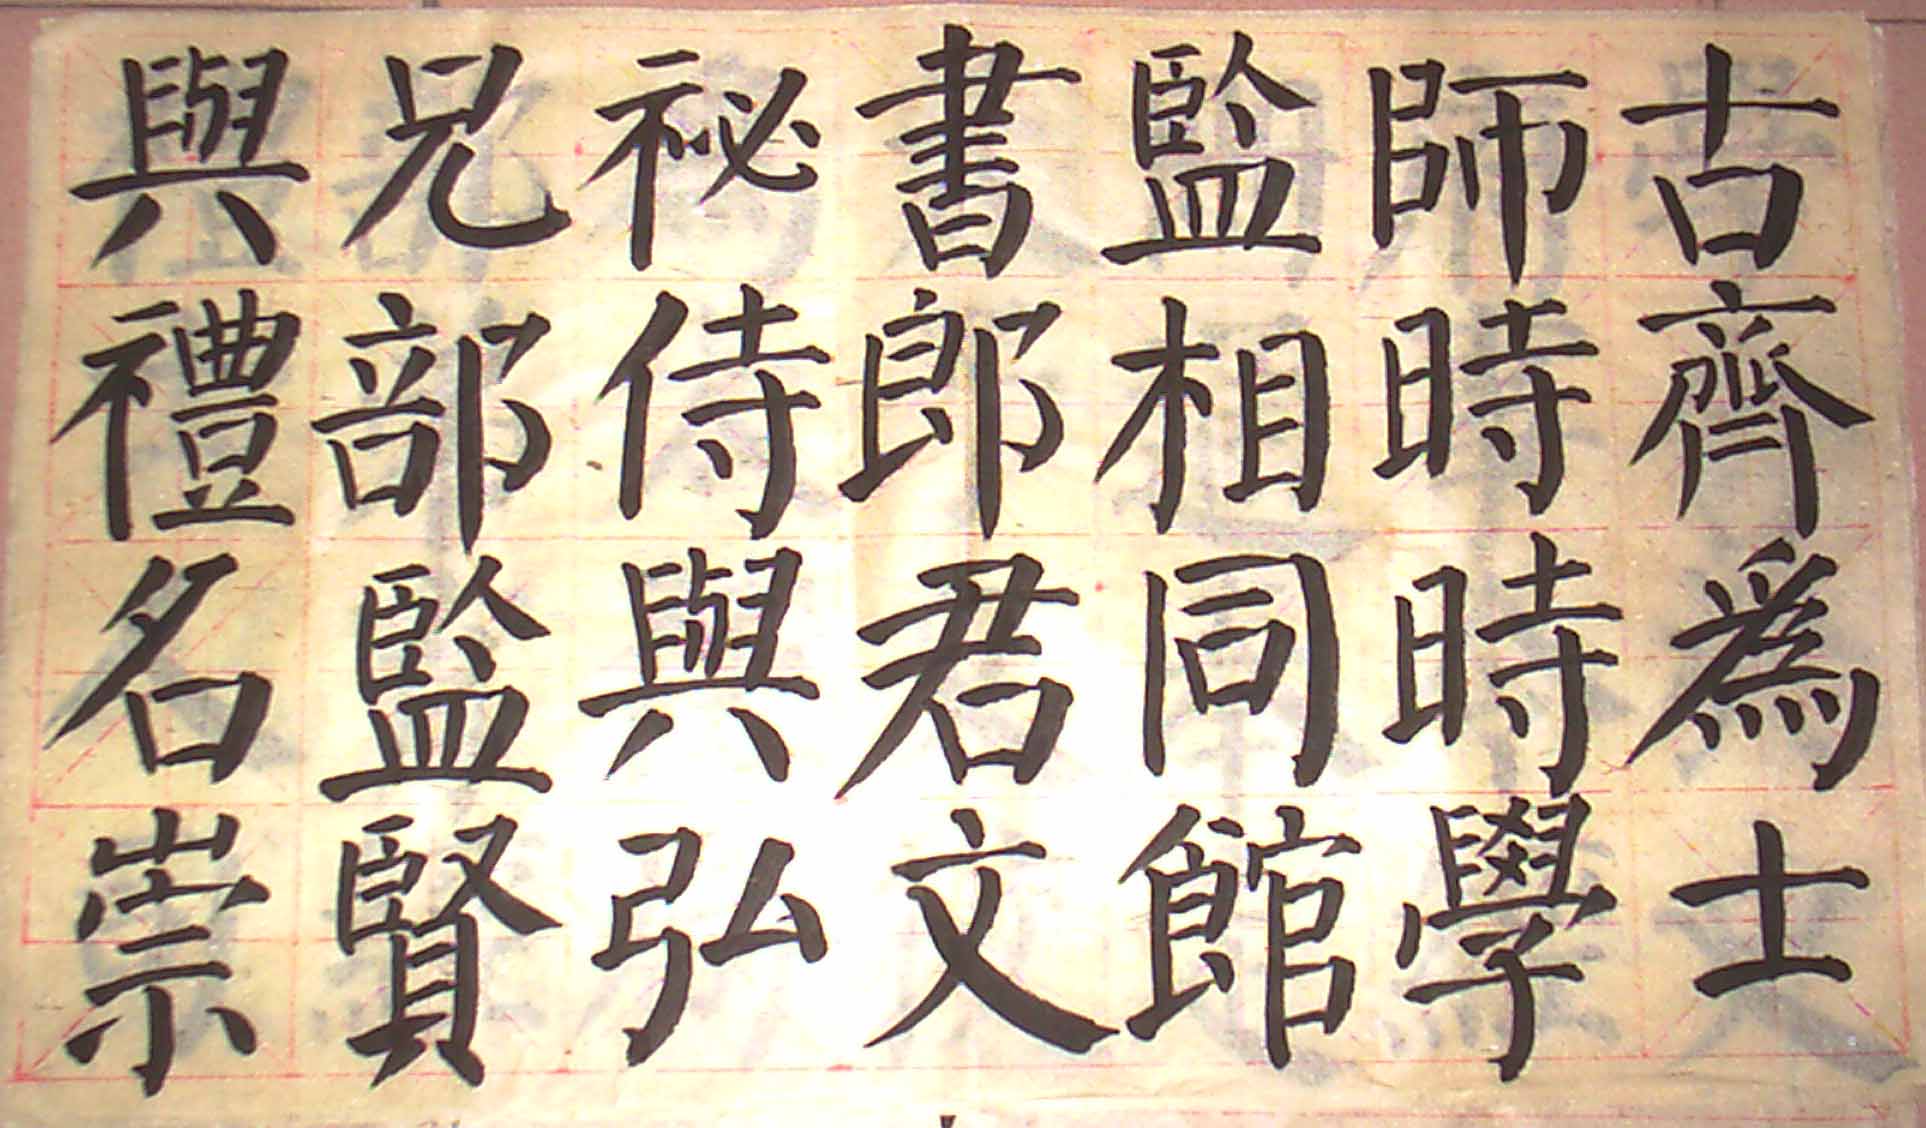 與兄祕書監師古
禮部侍郎相時齊
名監與君同時爲
崇賢弘文館學士